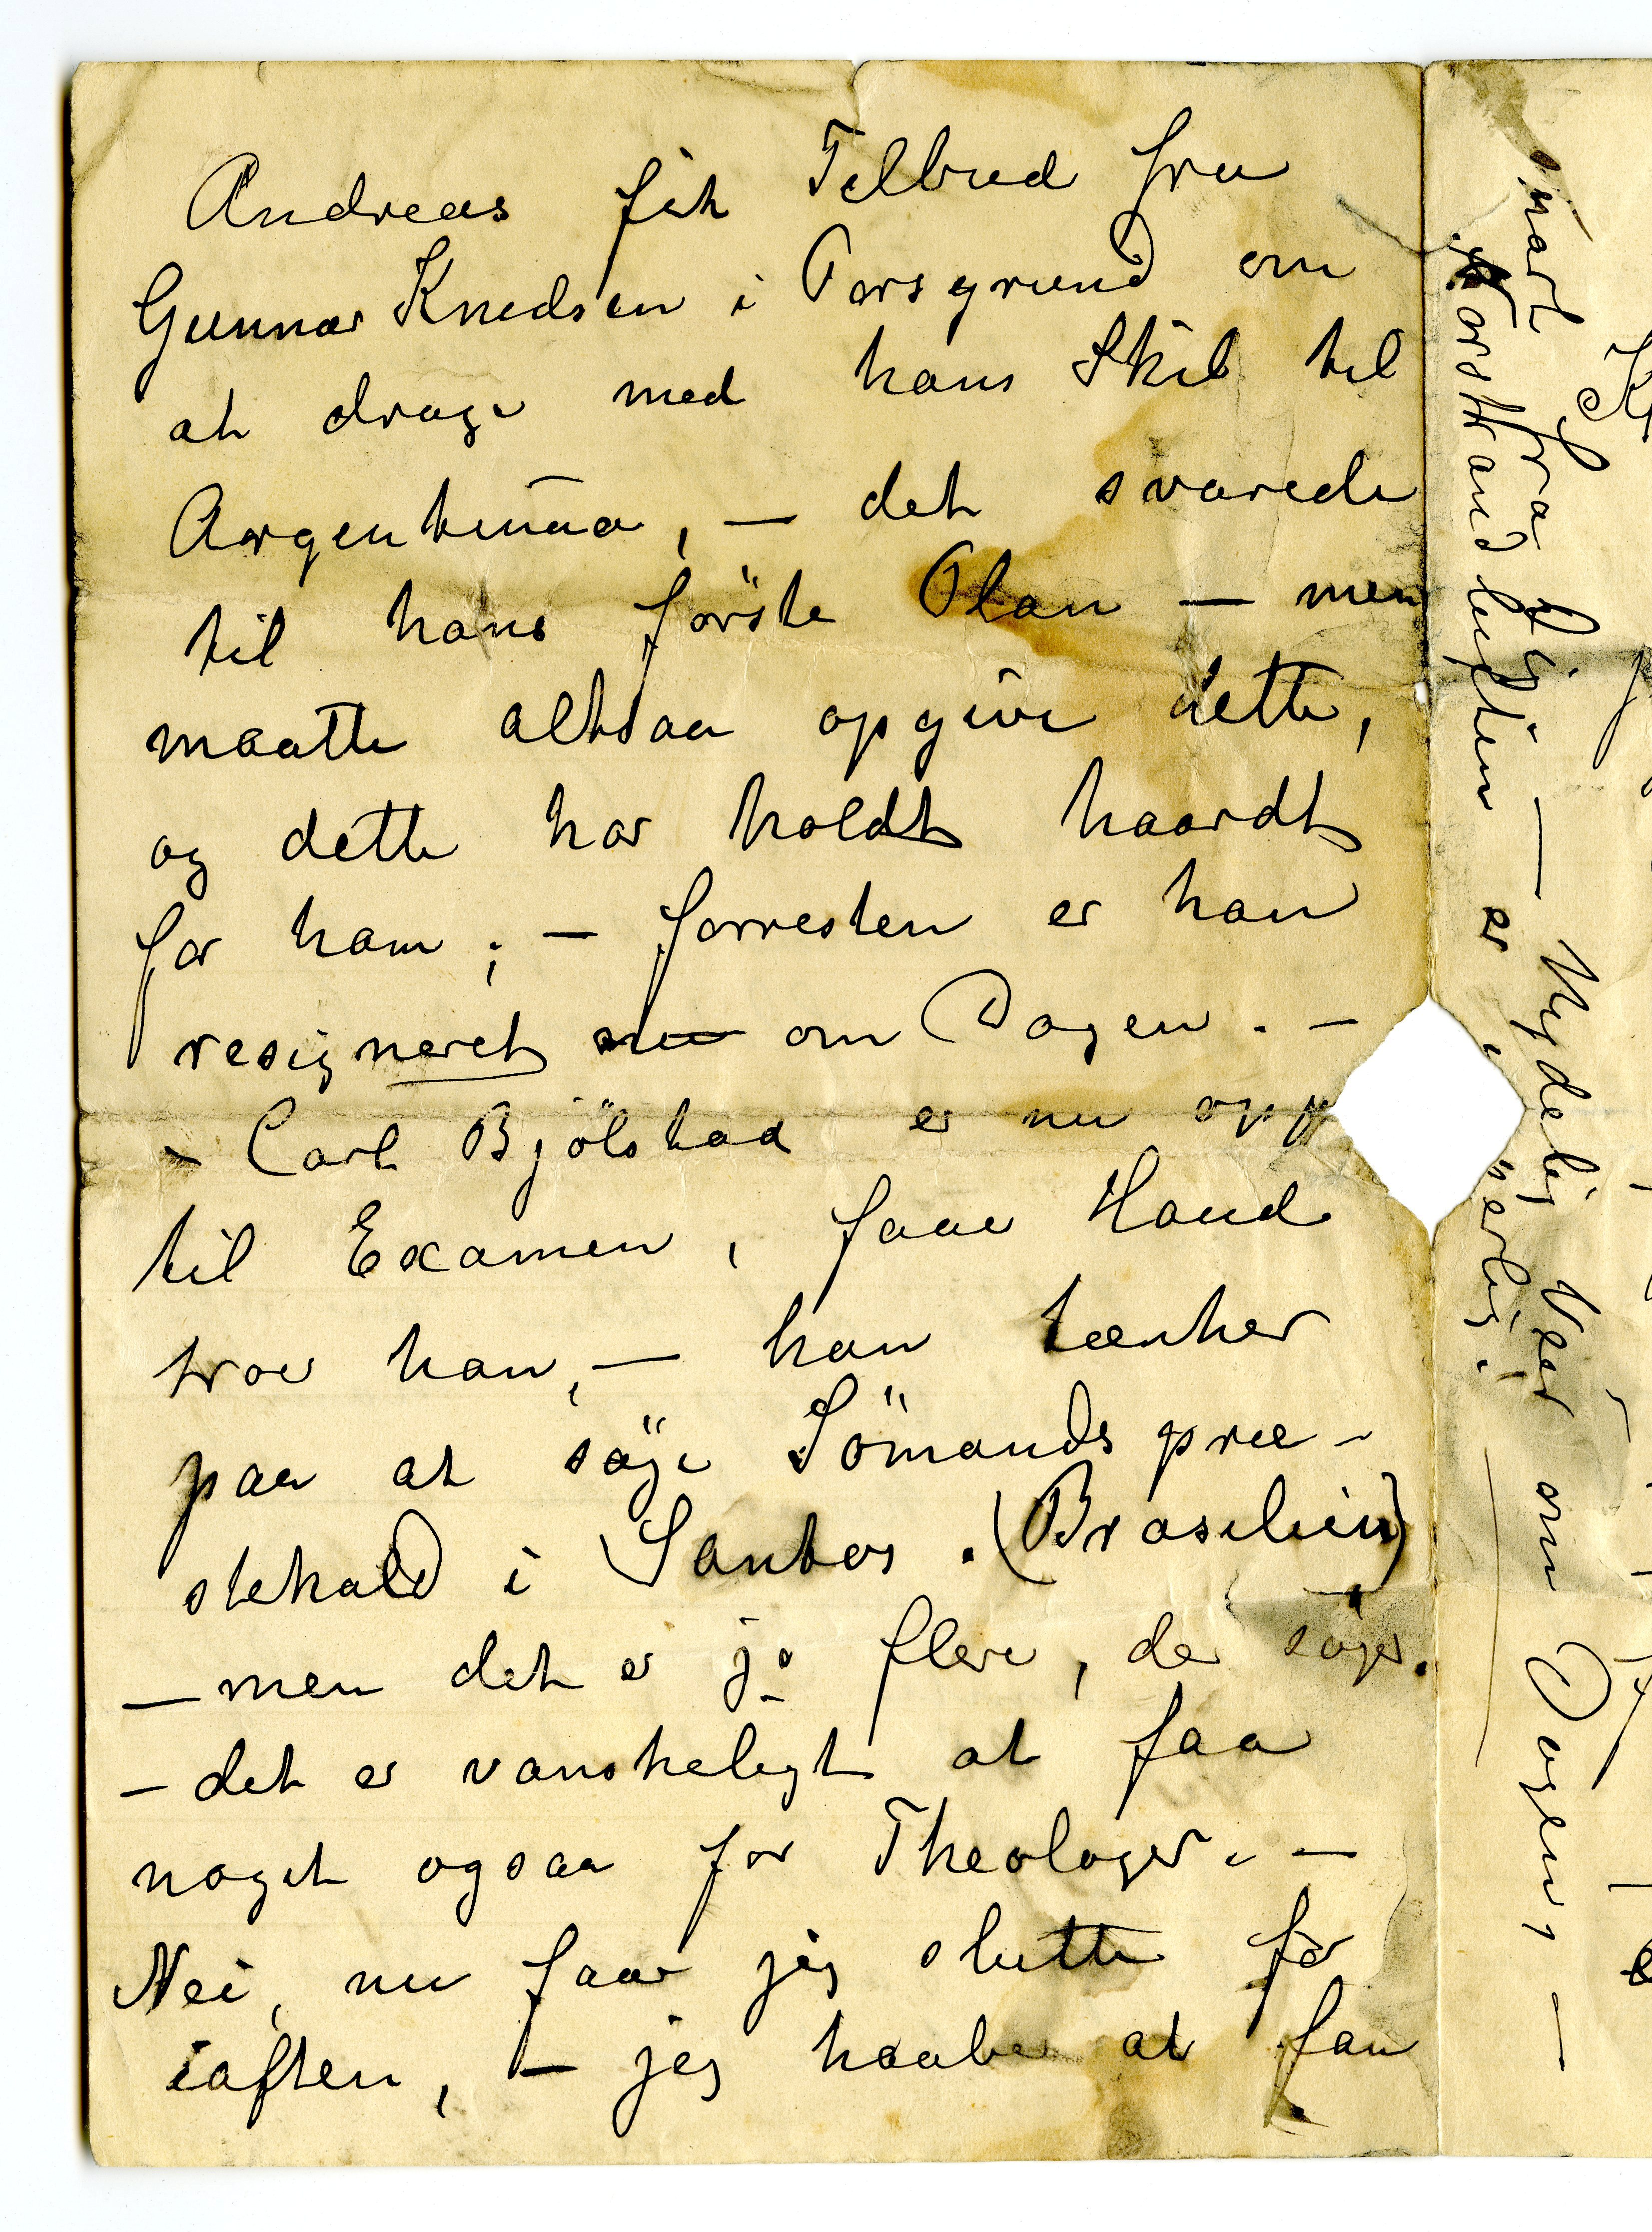 Andreas fik Tilbud fra
Gunnar Knudsen i Porsgrund om
at drage med hans Skib til
Argentina, — det svarede
til hans förste Plan — men
maatte altsaa opgive dette,
og dette har holdt haardt
for ham; — forresten er han
resigneret nu om Dagen. —
- Carl Bjölstad er nu opp
til Examen, faar Haud
tror han, — han tænker
paa at söge Sömandspræ-
stekald i Santos. (Brasilien)
— men det er jo flere, der söger.
— det er vanskeligt at faa
noget ogsaa for Theologer. —
Nei, nu faar jeg slutte for
iaften, — jeg haaber at faa
snart fra Dig. — Nydelig Veir om Dagen, —
er